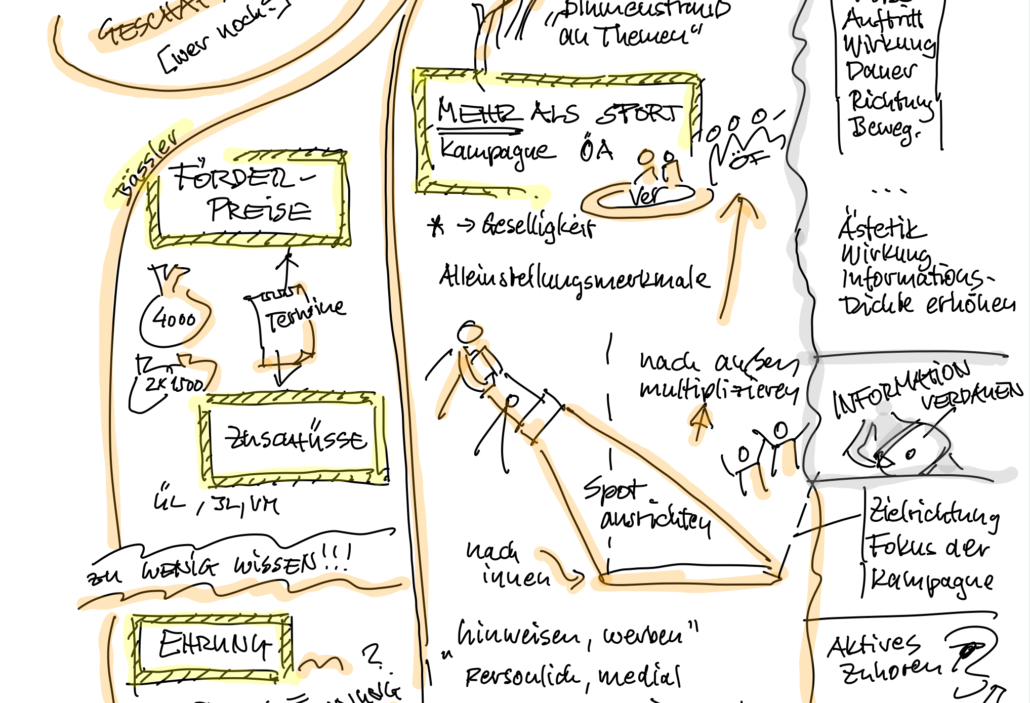 [wer noch?]
Bässler
FÖRDER-
PREISE
4000
Termine
2x1500
ZUSCHÜSSE
ÜL, JL, VM
ZU WENIG WISSEN!!!
EHRUNG
?
„Blumenstrauß
an Themen"
MEHR ALS SPORT
Kampagne ÖA
Ver
ÖF
* → Geselligkeit
Alleinstellungsmerkmale
nach außen
multiplizieren
Spot
ausrichten
nach
innen
„hinweisen, werben"
Persönlich, medial
Auftritt
Wirkung
Dauer
Richtung
Beweg.
...
Ästetik
Wirkung
Informations-
Dichte erhöhen
INFORMATION
VERDAUEN
Zielrichtung
Fokus der
Kampagne
Aktives
Zuhören